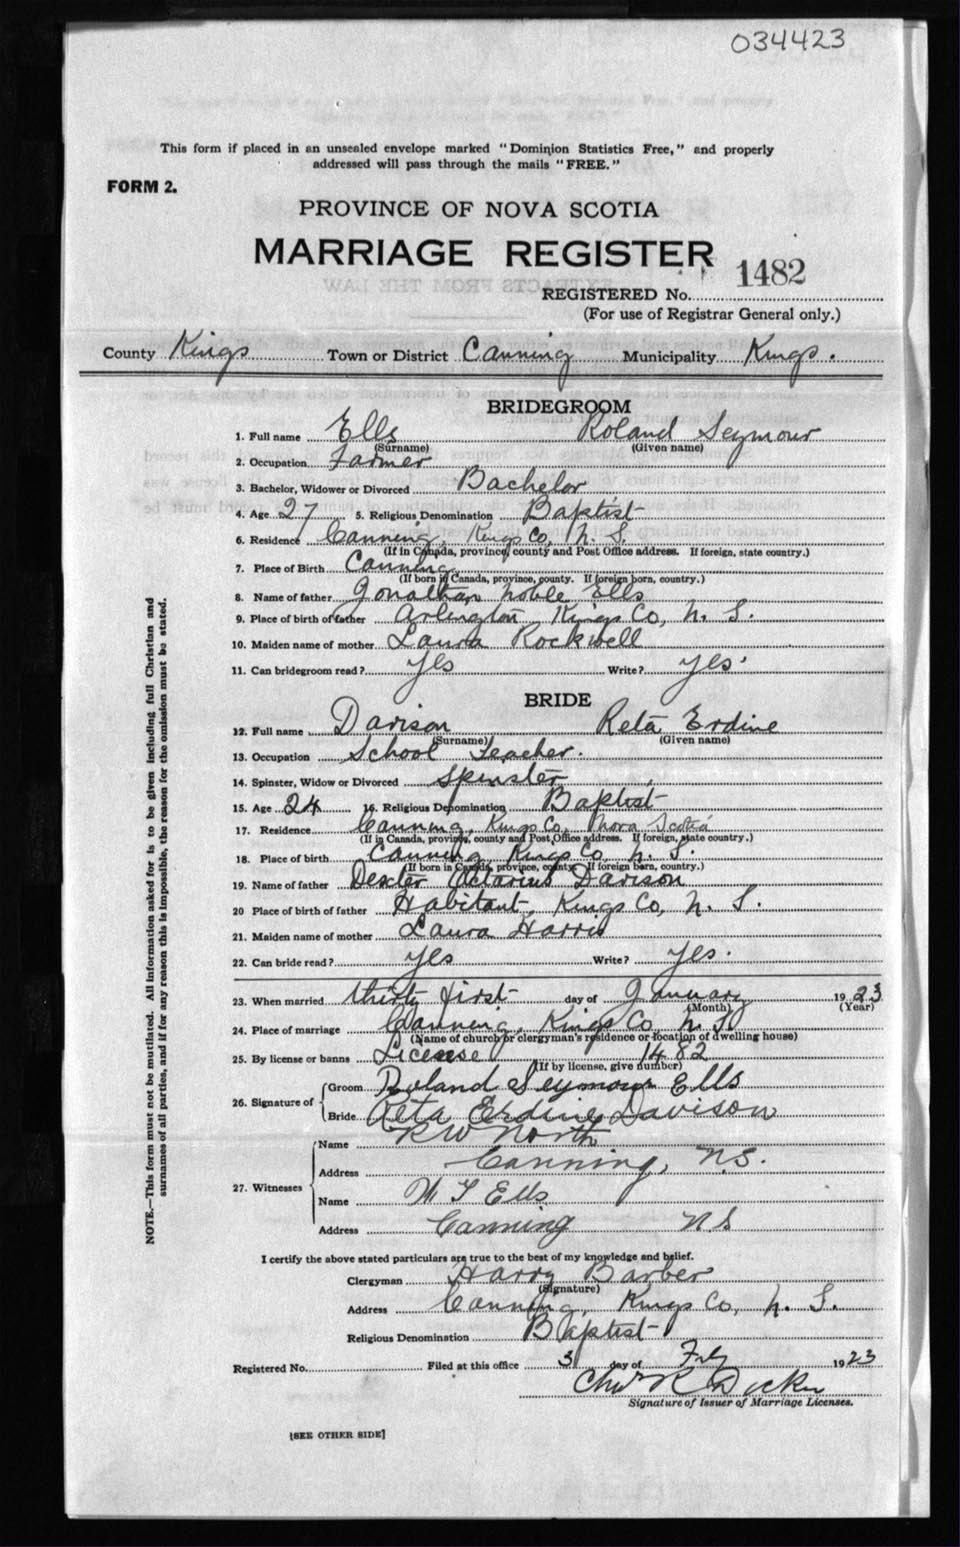 034423
This form if placed in an unsealed envelope marked "Dominion Statistics Free," and properly
addressed will pass through the mails "FREE."
FORM 2.
PROVINCE OF NOVA SCOTIA
MARRIAGE REGISTER
1482
REGISTERED No.
(For use of Registrar General only.)
County Kings Town or District Canning Municipality Kings.
BRIDEGROOM
1. Full name Ells Roland Seymour
(Surname) (Given name)
2. Occupation Farmer
3. Bachelor, Widower or Divorced Bachelor
4. Age 27 5. Religious Denomination Baptist
6. Residence Canning, Kings Co, N. S.
(If in Canada, province, county and Post Office address. If foreign, state country.)
7. Place of Birth Canning
(If born in Canada, province, county. If foreign born, country.)
8. Name of father Jonathan Noble Ells
9. Place of birth of father Arlington Kings Co, N. S.
10. Maiden name of mother Laura Rockwell
11. Can bridegroom read? yes Write? yes.
BRIDE
12. Full name Davison Reta Erdine
(Surname) (Given name)
13. Occupation School Teacher.
14. Spinster, Widow or Divorced Spinster
15. Age 24 16. Religious Denomination Baptist
17. Residence Canning, Kings Co, Nova Scotia
(If in Canada, province, county and Post Office address. If foreign, state country.)
18. Place of birth Canning Kings Co N. S.
(If born in Canada, province, county. If foreign born, country.)
19. Name of father Dexter Octavius Davison
20 Place of birth of father Habitant, Kings Co, N. S.
21. Maiden name of mother Laura Harris
22. Can bride read? yes Write? yes.
23. When married thirty first day of January 1923
(Month) (Year)
24. Place of marriage Canning, Kings Co, N. S.
(Name of church or clergyman's residence or location of dwelling house)
25. By license or banns License 1482
(If by license, give number)
26. Signature of
Groom Roland Seymour Ells
Bride Reta Erdine Davison
27. Witnesses
Name R W North
Address Canning, N.S.
Name Ells
Address Canning N S
I certify the above stated particulars are true to the best of my knowledge and belief.
Clergyman Harry Barber
(Signature)
Address Canning, Kings Co, N. S.
Religious Denomination Baptist
Registered No. Filed at this office 3 day of 1923
Signature of Issuer of Marriage Licenses.
[SEE OTHER SIDE]
NOTE.—This form must not be mutilated. All information asked for is to be given including full Christian and
surnames of all parties, and if for any reason this is impossible, the reason for the omission must be stated.